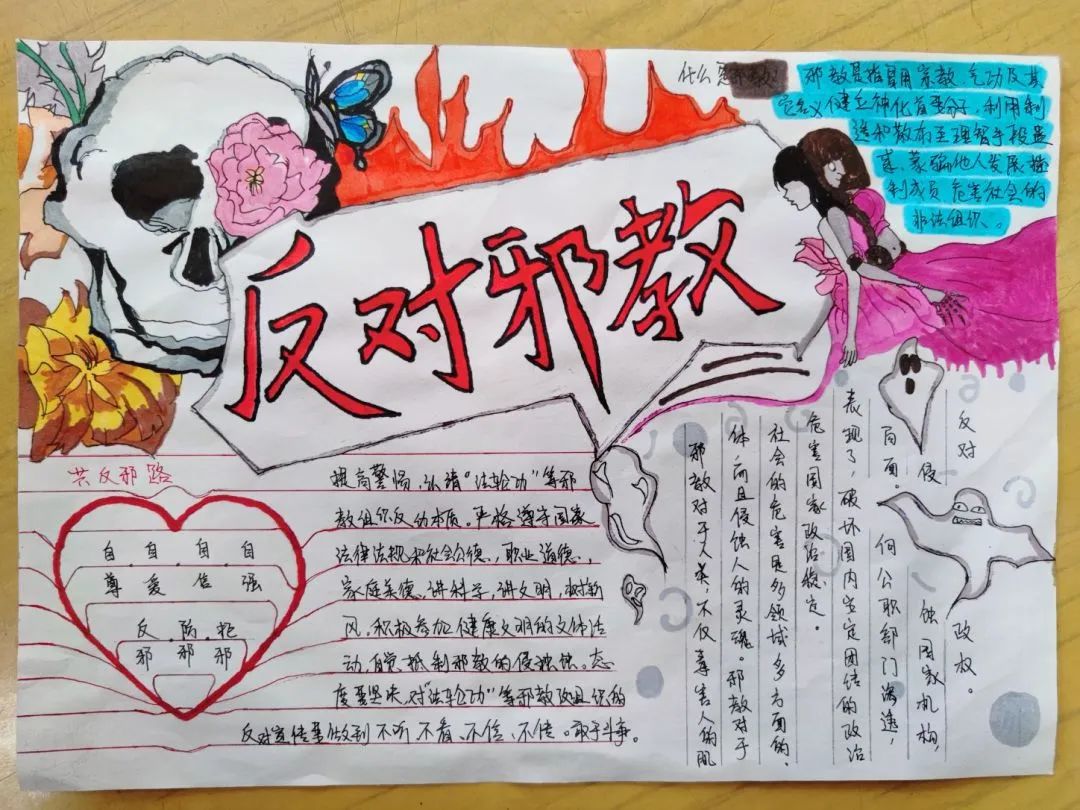 反对邪教
什么是邪教?
邪教是指冒用宗教、气功及其
它名义建立神化首要分子,利用制
造和散布歪理
惑、蒙骗他人发展控
制成员 危害社会的
非法组织。
共反邪路
自 自 自 自
尊 爱 信 强
反 防 拒
邪 邪 邪
提高警惕,认清“法轮功”等邪
教组织反动本质。严格遵守国家
法律法规和社会公德、职业道德、
家庭美德。讲科学,讲文明,树新
风,积极参加健康文明的文体活
动,自觉抵制邪教的侵蚀。态
度要坚决,对“法轮功”等邪教组织的
反对宣传要做到 不听 不看、不信、不传。敢于斗争。
反对 政权。
侵 蚀国家机构,
向公职部门渗透,
方面。
表现了,破坏国内安定团结的政治
危害国家政治稳定。
社会的危害是多领域多方面的.
体,而且侵蚀人的灵魂。邪教对于
邪教对于人类,不仅毒害人的肌